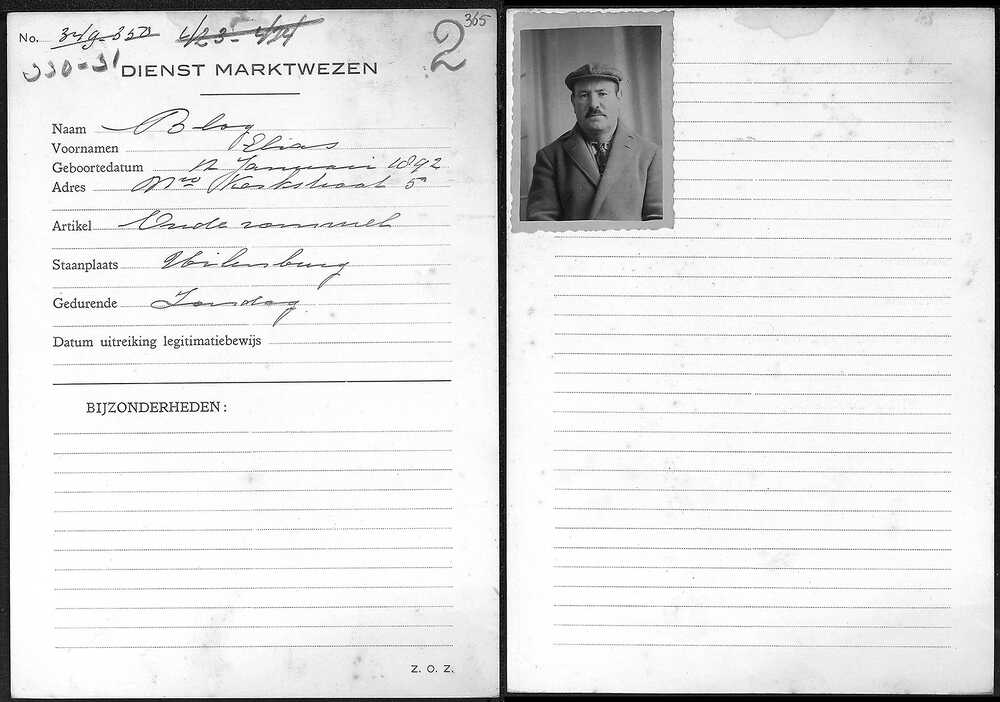 365
No. 34/9-350 4/23-4/24
2
330-31
DIENST MARKTWEZEN
Naam Blog
Voornamen Elias
Geboortedatum 12 Januari 1892
Adres Nwe Kerkstraat 5
Artikel Oude rommel
Staanplaats Uilenburg
Gedurende Zondag
Datum uitreiking legitimatiebewijs
BIJZONDERHEDEN:
Z. O. Z.